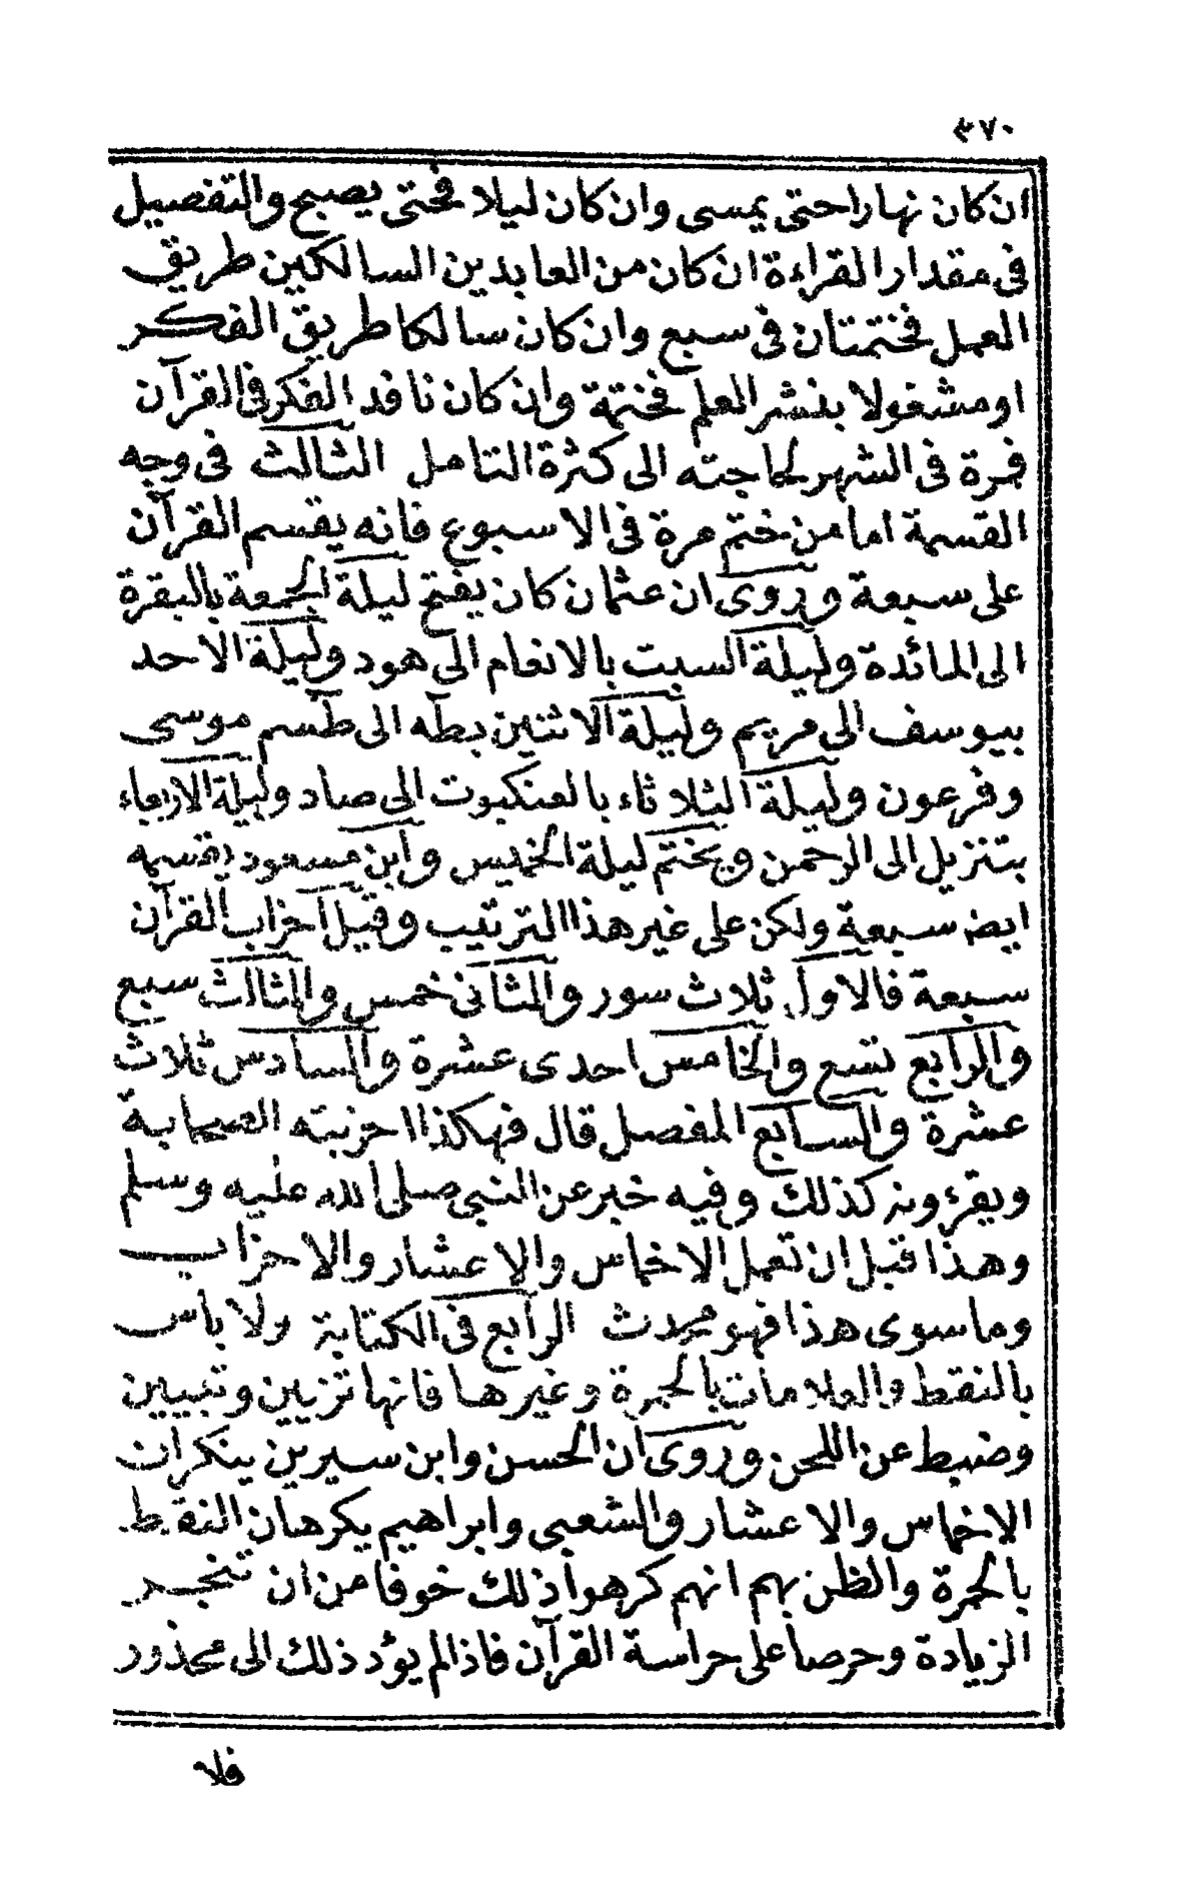 ٣٧٠
ان كان نهارا حتى يمسى وان كان ليلا فحتى يصبح والتفصيل
فى مقدار القراءة ان كان من العابدين السالكين طريق
العمل فختمتان فى سبع وان كان سالكا طريق الفكر
او مشغولا بنشر العلم فختمة وان كان نافد الفكر فى القرآن
فمرة فى الشهر لحاجته الى كثرة التامل الثالث فى وجه
القسمة اما من ختم مرة فى الاسبوع فانه يقسم القرآن
على سبعة وروى ان عثمان كان يفتح ليلة الجمعة بالبقرة
الى المائدة وليلة السبت بالانعام الى هود وليلة الاحد
بيوسف الى مريم وليلة الاثنين بطه الى طسم موسى
وفرعون وليلة الثلاثاء بالعنكبوت الى صاد وليلة الاربعاء
بتنزيل الى الرحمن ويختم ليلة الخميس وابن مسعود يقسمه
ايضه سبعة ولكن على غير هذا الترتيب وقيل احزاب القرآن
سبعة فالاول ثلاث سور والثانى خمس والثالث سبع
والرابع تسع والخامس احدى عشرة والسادس ثلاث
عشرة والسابع المفصل قال فهكذا احزبته الصحابة
ويقرءونه كذلك وفيه خبر عن النبى صلى الله عليه وسلم
وهذا قبل ان تعمل الاخماس والاعشار والاحزاب
وما سوى هذا فهو محدث الرابع فى الكتابة ولا باس
بالنقط والعلامات بالحمرة وغيرها فانها تزيين وتبيين
وضبط عن اللحن وروى ان الحسن وابن سيرين ينكران
الاخماس والاعشار والشعبى وابراهيم يكرهان النقط
بالحمرة والظن بهم انهم كرهوا ذلك خوفا من ان تنجر
الزيادة وحرصا على حراسة القرآن فاذا لم يؤد ذلك الى محذور
فلا